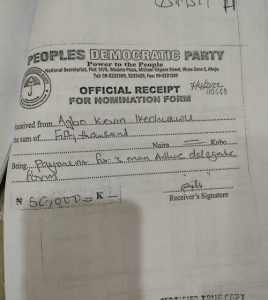 PEOPLES DEMOCRATIC PARTY
Power to the People
National Secretariat, Plot 1970, Wadata Plaza, Michael Okpara Street, Wuse Zone 5, Abuja.
OFFICIAL RECEIPT
FOR NOMINATION FORM
Received from Agbo Kevin Ikechukwu
the sum of Fifty thousand
Naira Kobo
Being Payment for 3 man Adhoc delegate
form
₦ 50,000 = K =
Receiver's Signature
CERTIFIED TRUE COPY